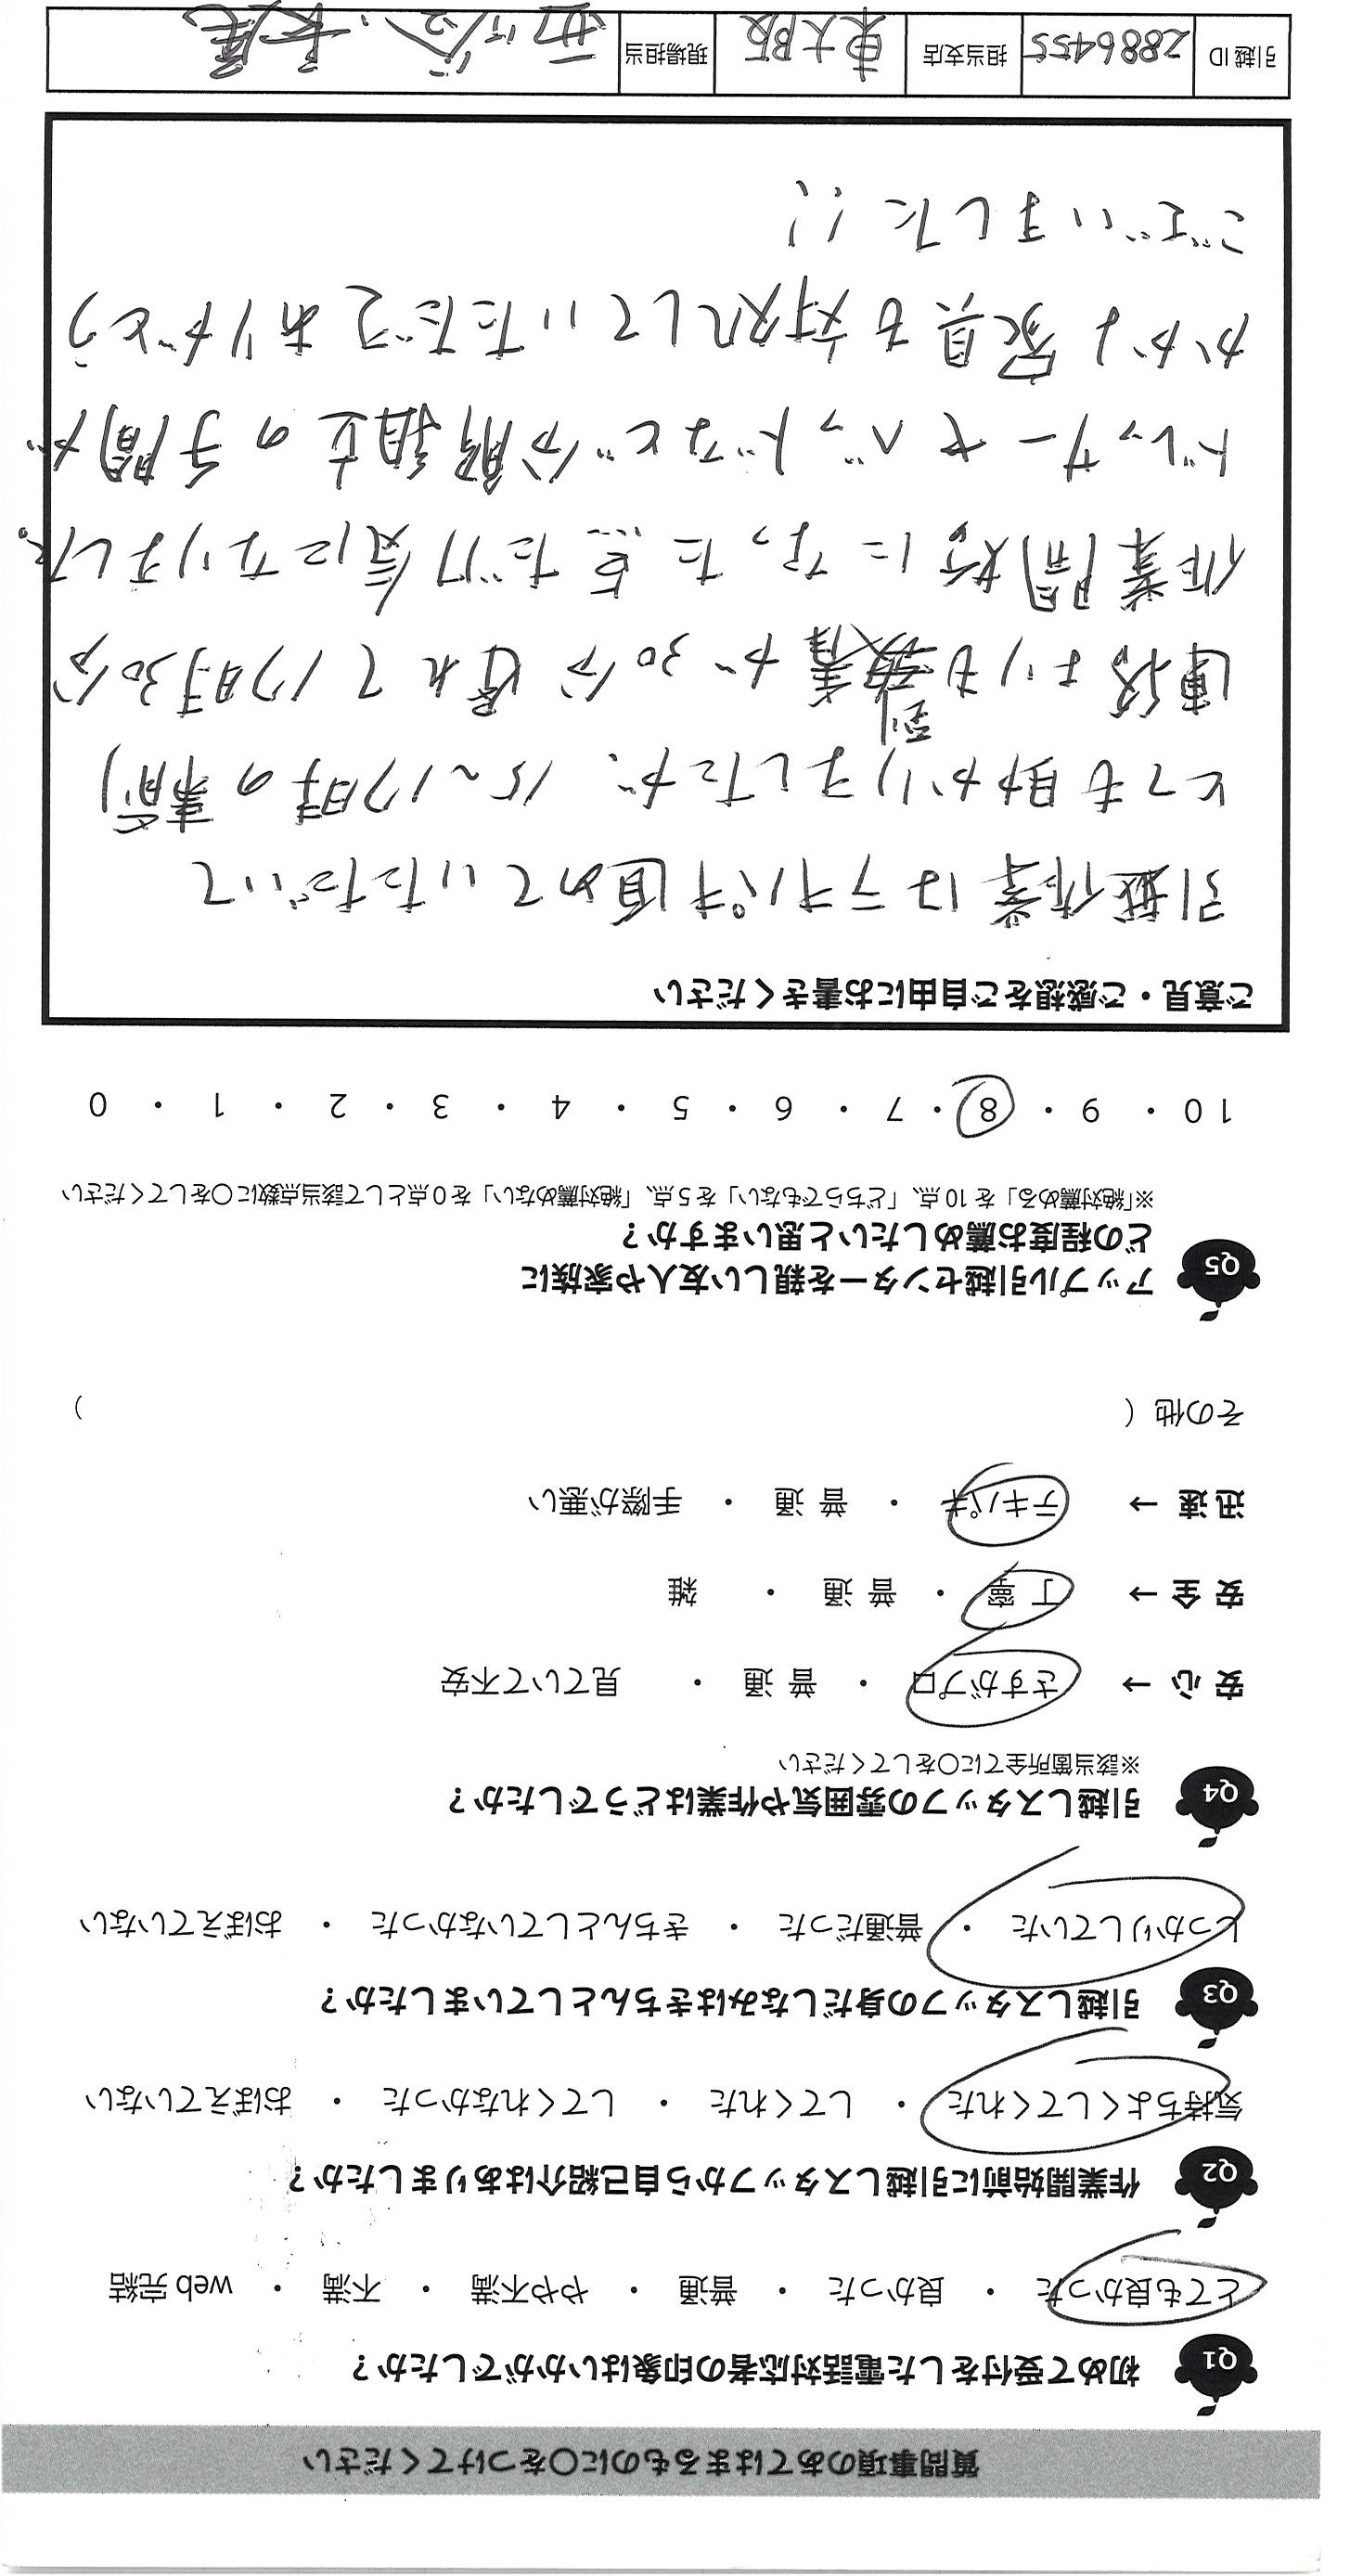 質問事項のあてはまるものに○をつけてください
Q1 初めて受付をした電話対応者の印象はいかがでしたか？
とても良かった ・ 良かった ・ 普通 ・ やや不満 ・ 不満 ・ web 完結
Q2 作業開始前に引越しスタッフから自己紹介はありましたか？
気持ちよくしてくれた ・ してくれた ・ してくれなかった ・ おぼえていない
Q3 引越しスタッフの身だしなみはきちんとしていましたか？
しっかりしていた ・ 普通だった ・ きちんとしていなかった ・ おぼえていない
Q4 引越しスタッフの雰囲気や作業はどうでしたか？
※該当箇所全てに○をしてください
安 心 → さすがプロ ・ 普 通 ・ 見ていて不安
安 全 → 丁 寧 ・ 普 通 ・ 雑
迅 速 → テキパキ ・ 普 通 ・ 手際が悪い
その他（ ）
Q5 アップル引越センターを親しい友人や家族に
どの程度お薦めしたいと思いますか？
※「絶対薦める」を 10 点、「どちらでもない」を 5 点、「絶対薦めない」を 0 点として該当点数に○をしてください
10 ・ 9 ・ 8 ・ 7 ・ 6 ・ 5 ・ 4 ・ 3 ・ 2 ・ 1 ・ 0
ご意見・ご感想をご自由にお書きください
引越作業はテキパキ進めていただいて
とても助かりましたが、15〜17時の事前
連絡よりも到着が30分遅れて17時30分
作業開始になった点だけ気になりました。
ドレッサーやベッドなど分解組立の手間が
かかる家具も対処していただきありがとう
ございました!!
引越 ID 2886455 担当支店 東大阪 現場担当 長尾